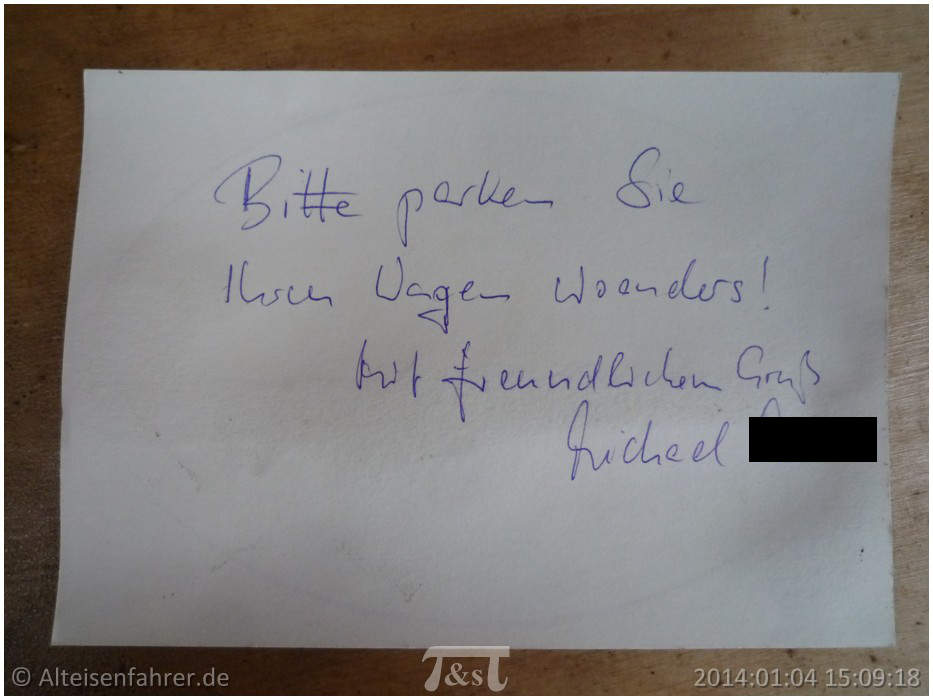 Bitte parken Sie
Ihren Wagen woanders!
Mit freundlichem Gruß
Michael
© Alteisenfahrer.de
T&sT
2014:01:04 15:09:18